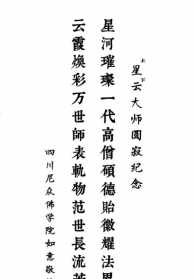 上
下
星云大师圆寂纪念
星河璀璨一代高僧碩德貽徽耀法界
云霞焕彩万世師表軌物范世長流芳
四川尼众佛学院如意敬